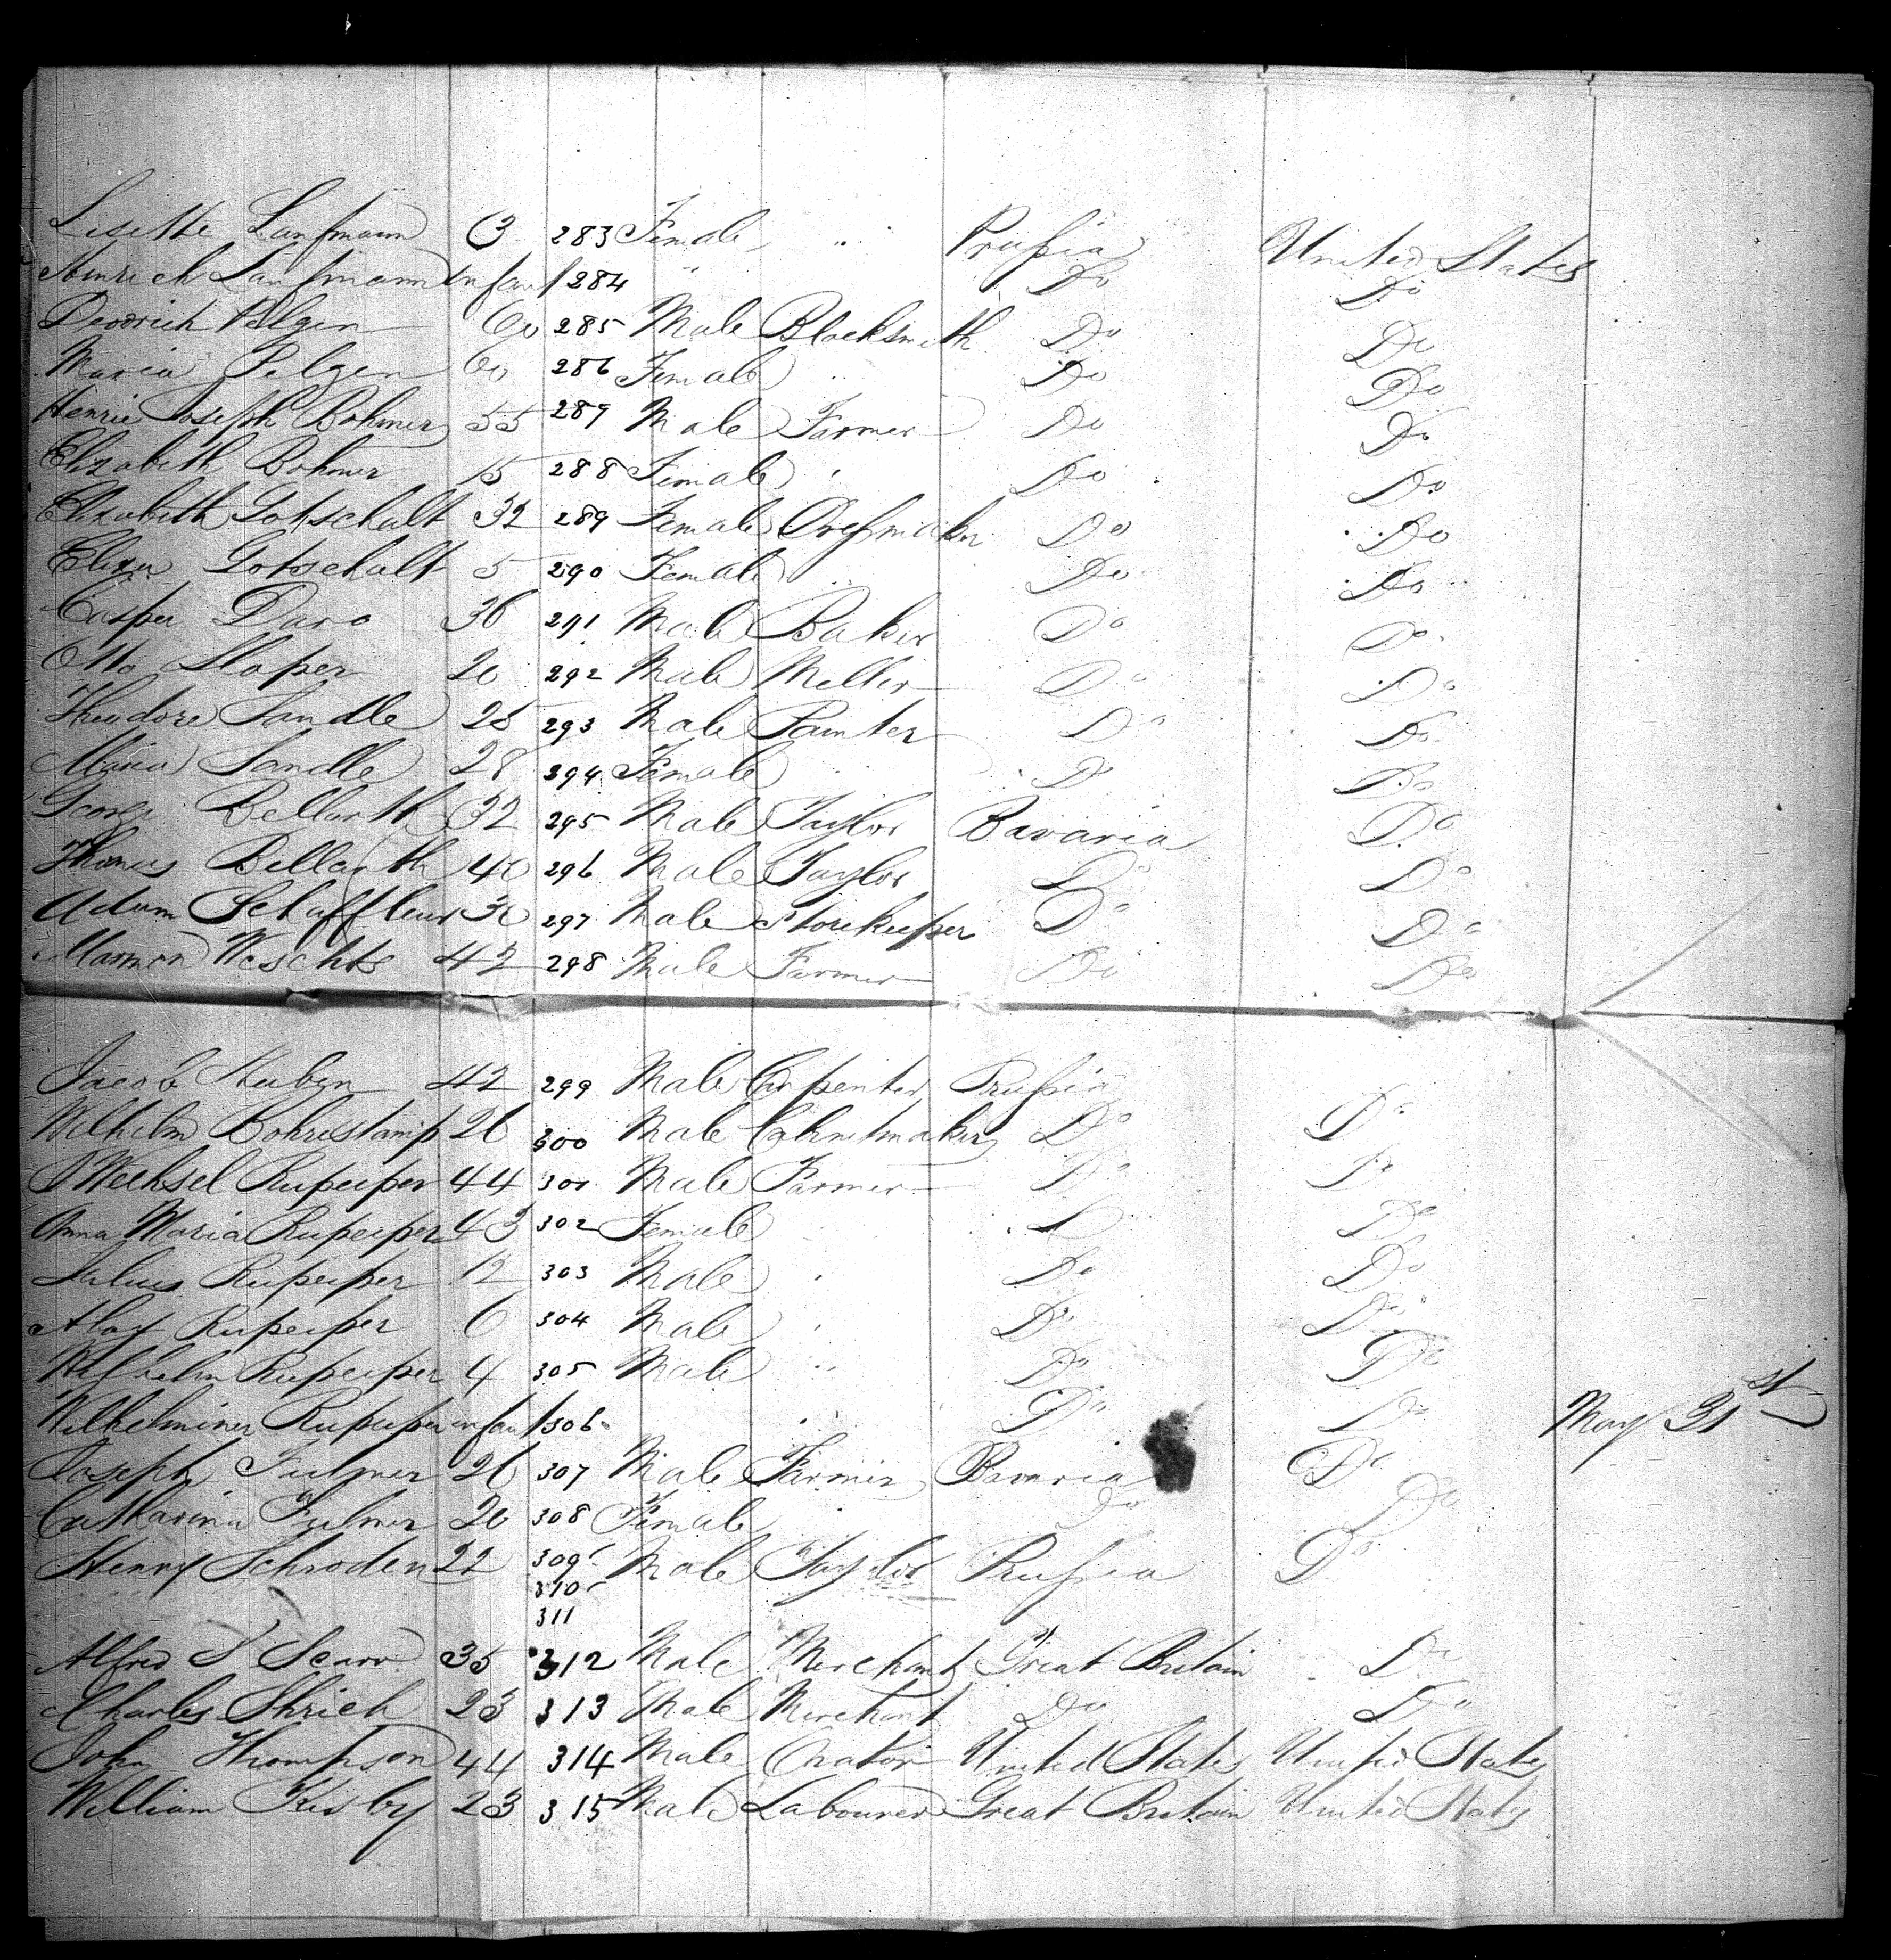 Lisette Laufmann 3 283 Female " Prussia United States
Hinrich Laufmann Infant 284 " Do Do
Diedrich Pilgen 60 285 Male Blacksmith Do Do
Maria Pilgen 60 286 Female " Do Do
Henrie Joseph Bohmer 55 287 Male Farmer Do Do
Elizabeth Bohmer 15 288 Female " Do Do
Elizabeth Gotschalt 32 289 Female Dressmaker Do Do
Eliza Gotschalt 5 290 Female " Do Do
Casper Duro 36 291 Male Baker Do Do
Otto Sloper 20 292 Male Do Do
Theodore Sandle 25 293 Male Painter Do Do
Maria Sandle 28 294 Female " Do Do
George Bellarth 32 295 Male Taylor Bavaria Do
Thomas Bellarth 40 296 Male Taylor Do Do
Adam Schaffleur 30 297 Male Storekeeper Do Do
Weschts 42 298 Male Farmer Do Do
Jacob 42 299 Male Carpenter Prussia
Wilhelm Bohrestamp 26 300 Male Cabinetmaker Do Do
Wechsel Rupeiper 44 301 Male Farmer Do Do
Anna Maria Rupeiper 43 302 Female Do
Julius Rupeiper 12 303 Male " Do Do
Aloy Rupeiper 6 304 Male " Do Do
Wilhelm Rupeiper 4 305 Male " Do Do
Wilhelminer Rupeiper infant 306 " Do Do May 31st
Joseph Fulmer 26 307 Male Farmer Bavaria Do
Catharina Fulmer 20 308 Female Do Do
Henry Schroden 22 309 Male Taylor Prussia Do
310
311
Alfred S Scarr 35 312 Male Merchant Great Britain Do
Charles Shrieh 23 313 Male Merchant Do Do
John Thompson 44 314 Male Orator United States United States
William Kisby 23 315 Male Labourer Great Britain United States